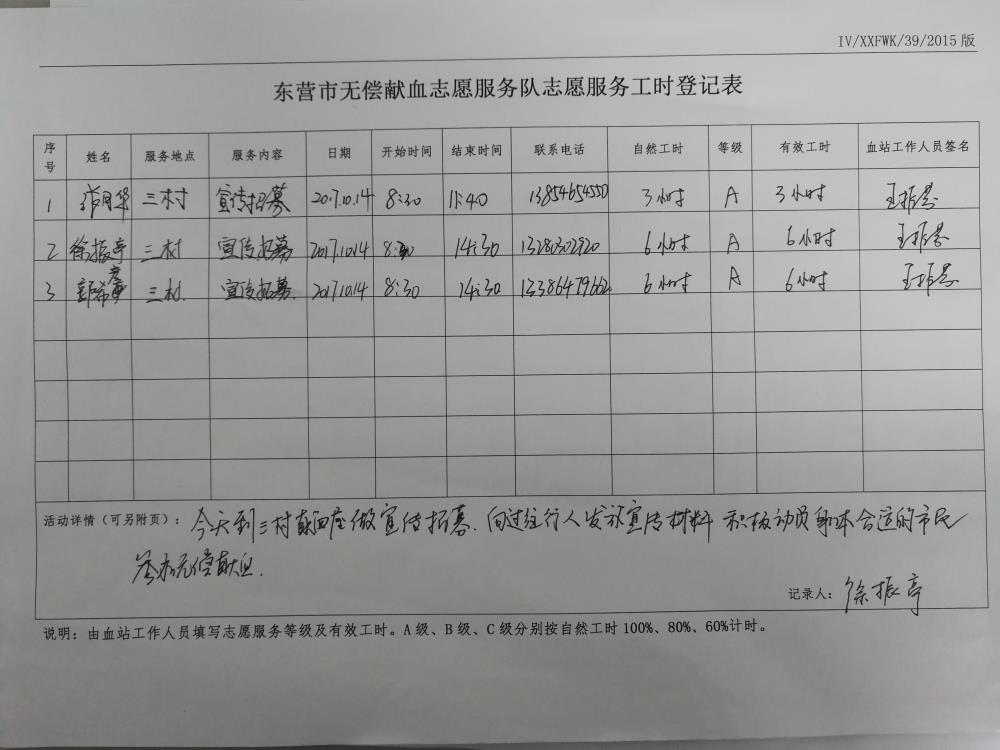 IV/XXFWK/39/2015版
东营市无偿献血志愿服务队志愿服务工时登记表
序号 姓名 服务地点 服务内容 日期 开始时间 结束时间 联系电话 自然工时 等级 有效工时 血站工作人员签名
1 三村 宣传招募 2017.10.14 8:30 11:40 13854654550 3小时 A 3小时
2 徐振亭 三村 宣传招募 2017.10.14 8:30 14:30 13280302920 6小时 A 6小时
3 三村 宣传招募 2017.10.14 8:30 14:30 13386479662 6小时 A 6小时
活动详情(可另附页): 今天到三村献血屋做宣传招募.向过往行人发放宣传材料 积极动员身体合适的市民
参加无偿献血.
记录人: 徐振亭
说明:由血站工作人员填写志愿服务等级及有效工时。A级、B级、C级分别按自然工时100%、80%、60%计时。